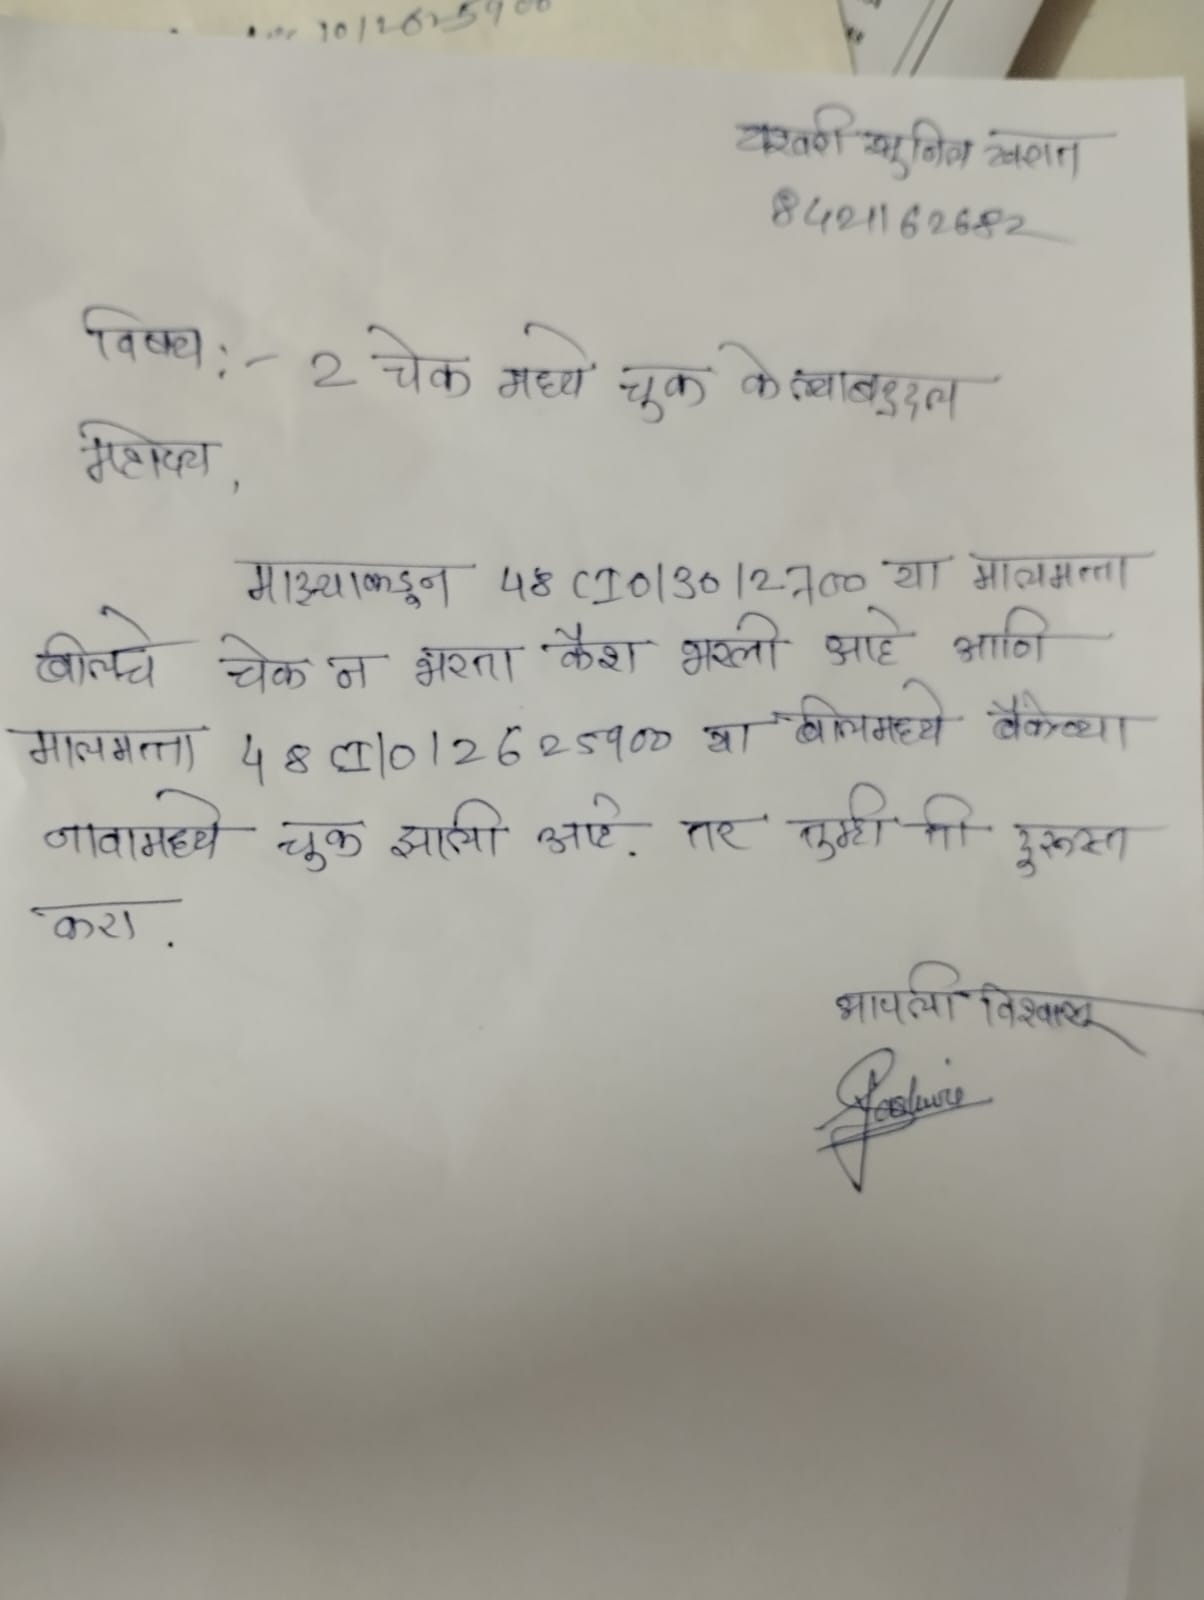 10/2625900
सुनिल
8421162682
विषय :- 2 चेक मध्ये चुक केल्याबद्दल
महोदय,
माझ्याकडून 48 CI0/30/2700 या मालमत्ता
बीलचे चेक न भरता कॅश भरली आहे आणि
मालमत्ता 48 CI/0/2625900 या बीलमध्ये बँकेच्या
नावामध्ये चुक झाली आहे. तर तुम्ही ती दुरूस्त
करा.
आपली विश्वासू